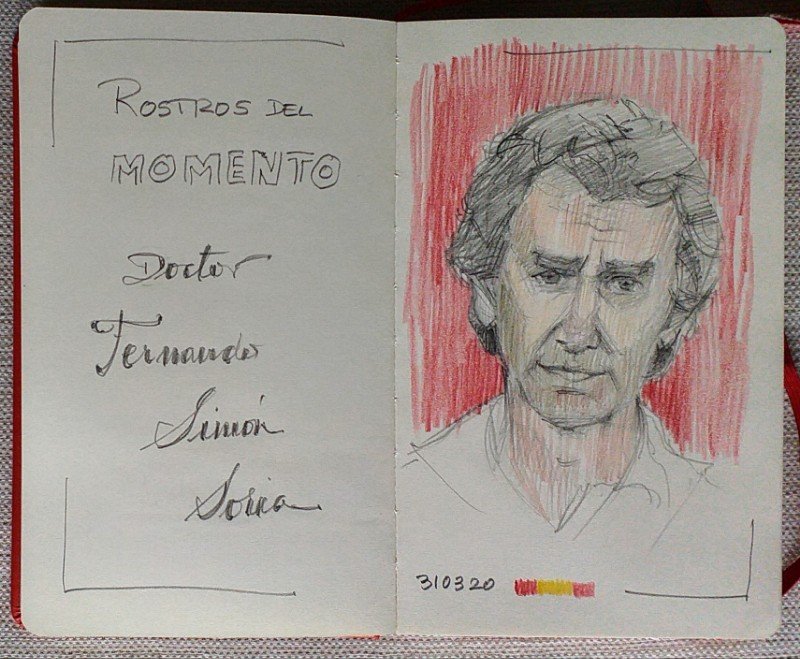 ROSTROS DEL
MOMENTO
Doctor
Fernando
Simón
Soria
310320